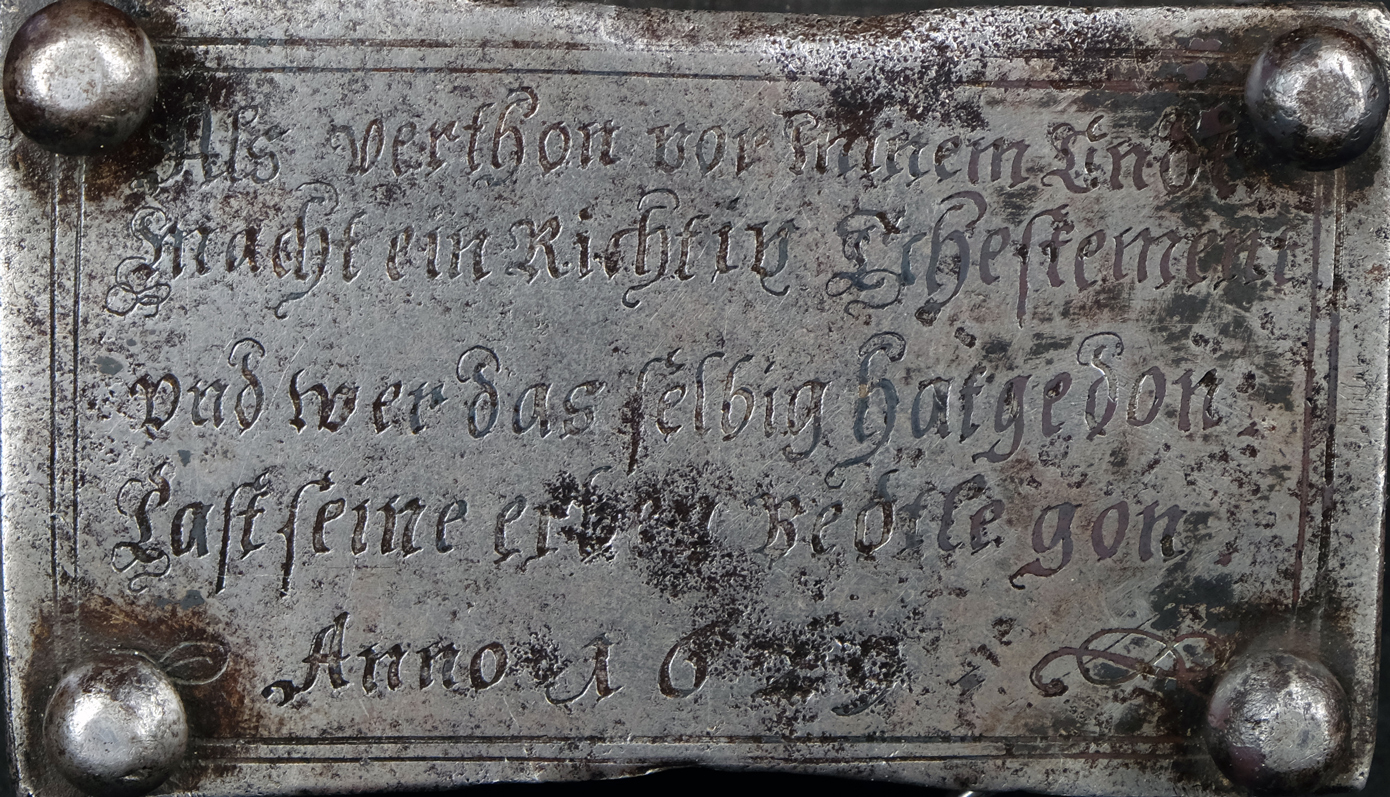 Als verthon vor Minem Endt
Macht ein Richtir Tchestement
vnd wer das selbig hat gedon
Last seine erben Redtle gon
Anno 1 6